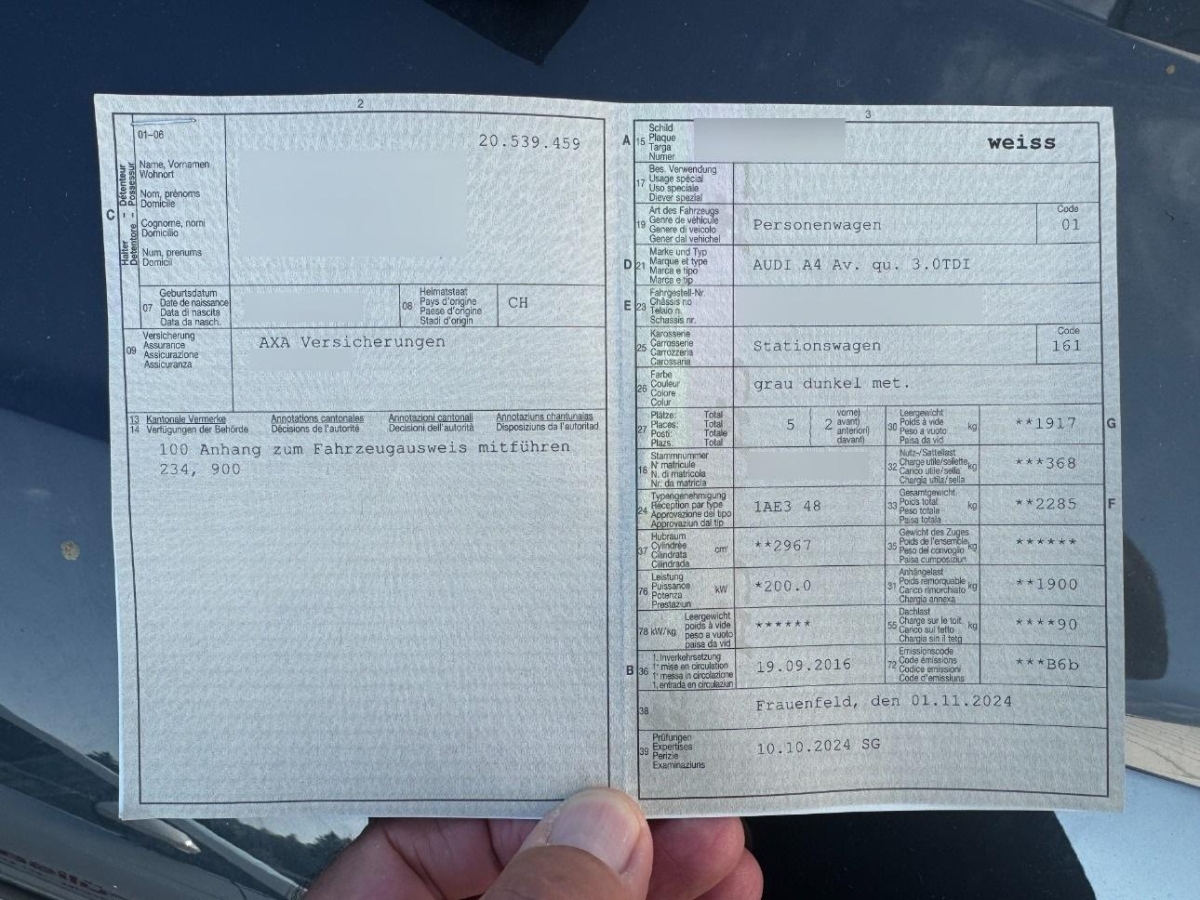 2
01-06
20.539.459
C
Halter - Détenteur
Detentore - Possessur
Name, Vornamen
Wohnort
Nom, prénoms
Domicile
Cognome, nomi
Domicilio
Num, prenums
Domicil
07
Geburtsdatum
Date de naissance
Data di nascita
Data da nasch.
08
Heimatstaat
Pays d'origine
Paese d'origine
Stadi d'origin
CH
09
Versicherung
Assurance
Assicurazione
Assicuranza
AXA Versicherungen
13 Kantonale Vermerke Annotations cantonales Annotazioni cantonali Annotaziuns chantunalas
14 Verfügungen der Behörde Décisions de l'autorité Decisioni dell'autorità Disposiziuns da l'autoritad
100 Anhang zum Fahrzeugausweis mitführen
234, 900
3
A
15
Schild
Plaque
Targa
Numer
weiss
17
Bes. Verwendung
Usage spécial
Uso speciale
Diever spezial
19
Art des Fahrzeugs
Genre de véhicule
Genere di veicolo
Gener dal vehichel
Personenwagen
Code
01
D
21
Marke und Typ
Marque et type
Marca e tipo
Marca e tip
AUDI A4 Av. qu. 3.0TDI
E
23
Fahrgestell-Nr.
Châssis no
Telaio n.
Schassis nr.
25
Karosserie
Carrosserie
Carrozzeria
Carossaria
Stationswagen
Code
161
26
Farbe
Couleur
Colore
Colur
grau dunkel met.
27
Plätze: Total
Places: Total
Posti: Totale
Plazs: Total
5
2
vorne)
avant)
anteriori)
davant)
30
Leergewicht
Poids à vide
Peso a vuoto
Paisa da vid
kg
**1917
G
18
Stammnummer
N° matricule
N. di matricola
Nr. da matricla
32
Nutz-/Sattellast
Charge utile/sellette
Carico utile/sella
Chargia utila/sella
kg
***368
24
Typengenehmigung
Réception par type
Approvazione del tipo
Approvaziun dal tip
1AE3 48
33
Gesamtgewicht
Poids total
Peso totale
Paisa totala
kg
**2285
F
37
Hubraum
Cylindrée
Cilindrata
Cilindrada
cm³
**2967
35
Gewicht des Zuges
Poids de l'ensemble
Peso del convoglio
Paisa cumposiziun
kg
******
76
Leistung
Puissance
Potenza
Prestaziun
kW
*200.0
31
Anhängelast
Poids remorquable
Carico rimorchiato
Chargia annexa
kg
**1900
78 kW/kg
Leergewicht
poids à vide
peso a vuoto
paisa da vid
******
55
Dachlast
Charge sur le toit
Carico sul tetto
Chargia sin il tetg
kg
****90
B
36
1. Inverkehrsetzung
1re mise en circulation
1a messa in circolazione
1. entrada en circulaziun
19.09.2016
72
Emissionscode
Code émissions
Codice emissioni
Code d'emissiuns
***B6b
38
Frauenfeld, den 01.11.2024
39
Prüfungen
Expertises
Perizie
Examinaziuns
10.10.2024 SG